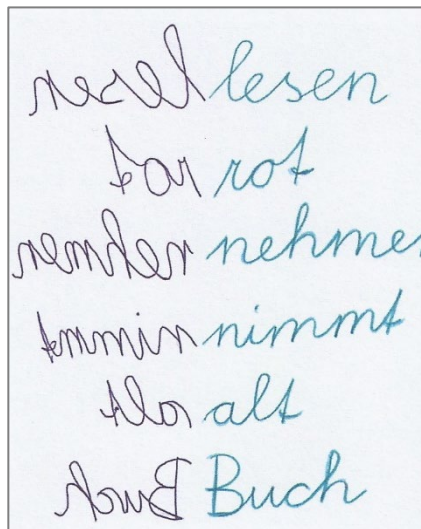 lesen lesen
rot rot
nehmen nehmen
nimmt nimmt
alt alt
Buch Buch